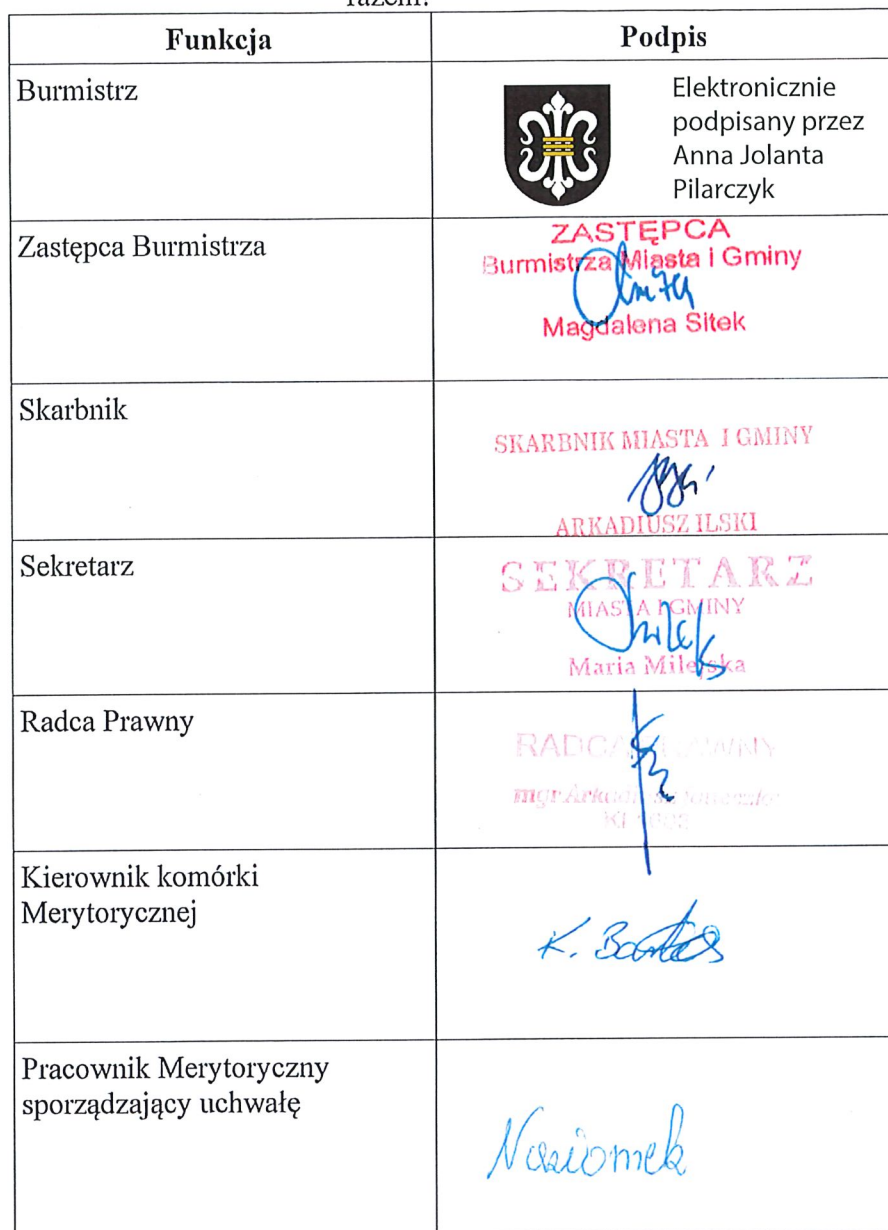 Funkcja
Podpis
Burmistrz
Elektronicznie
podpisany przez
Anna Jolanta
Pilarczyk
Zastępca Burmistrza
ZASTĘPCA
Burmistrza Miasta i Gminy
Magdalena Sitek
Skarbnik
SKARBNIK MIASTA I GMINY
ARKADIUSZ ILSKI
Sekretarz
SEKRETARZ
MIASTA I GMINY
Maria Milejska
Radca Prawny
RADCA PRAWNY
mgr
Kierownik komórki
Merytorycznej
K.
Pracownik Merytoryczny
sporządzający uchwałę